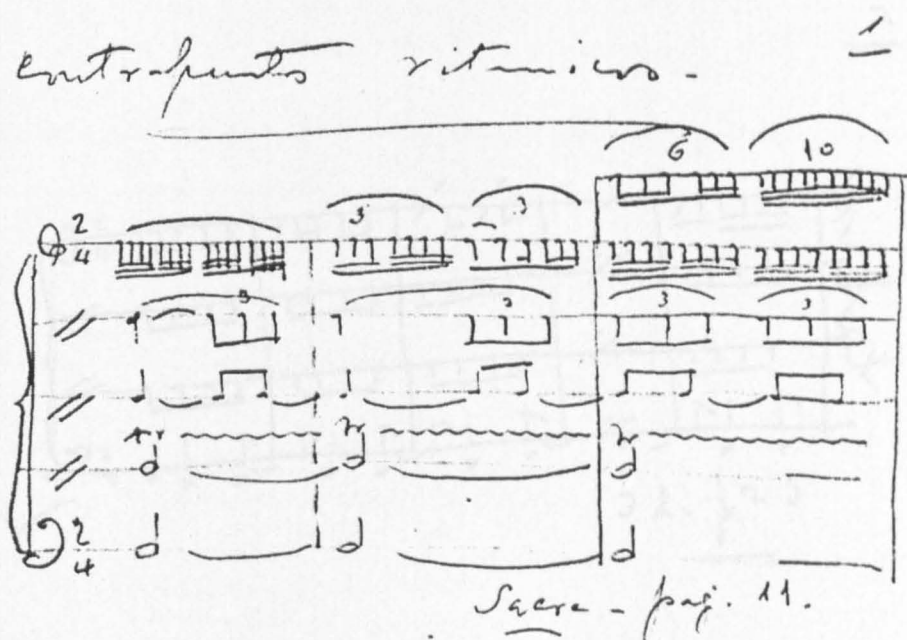 1
contrapuntos ritmicos.
6 10
2 4
3 3
3 3 3 3
tr tr tr
2 4
Sacre - pag. 11.